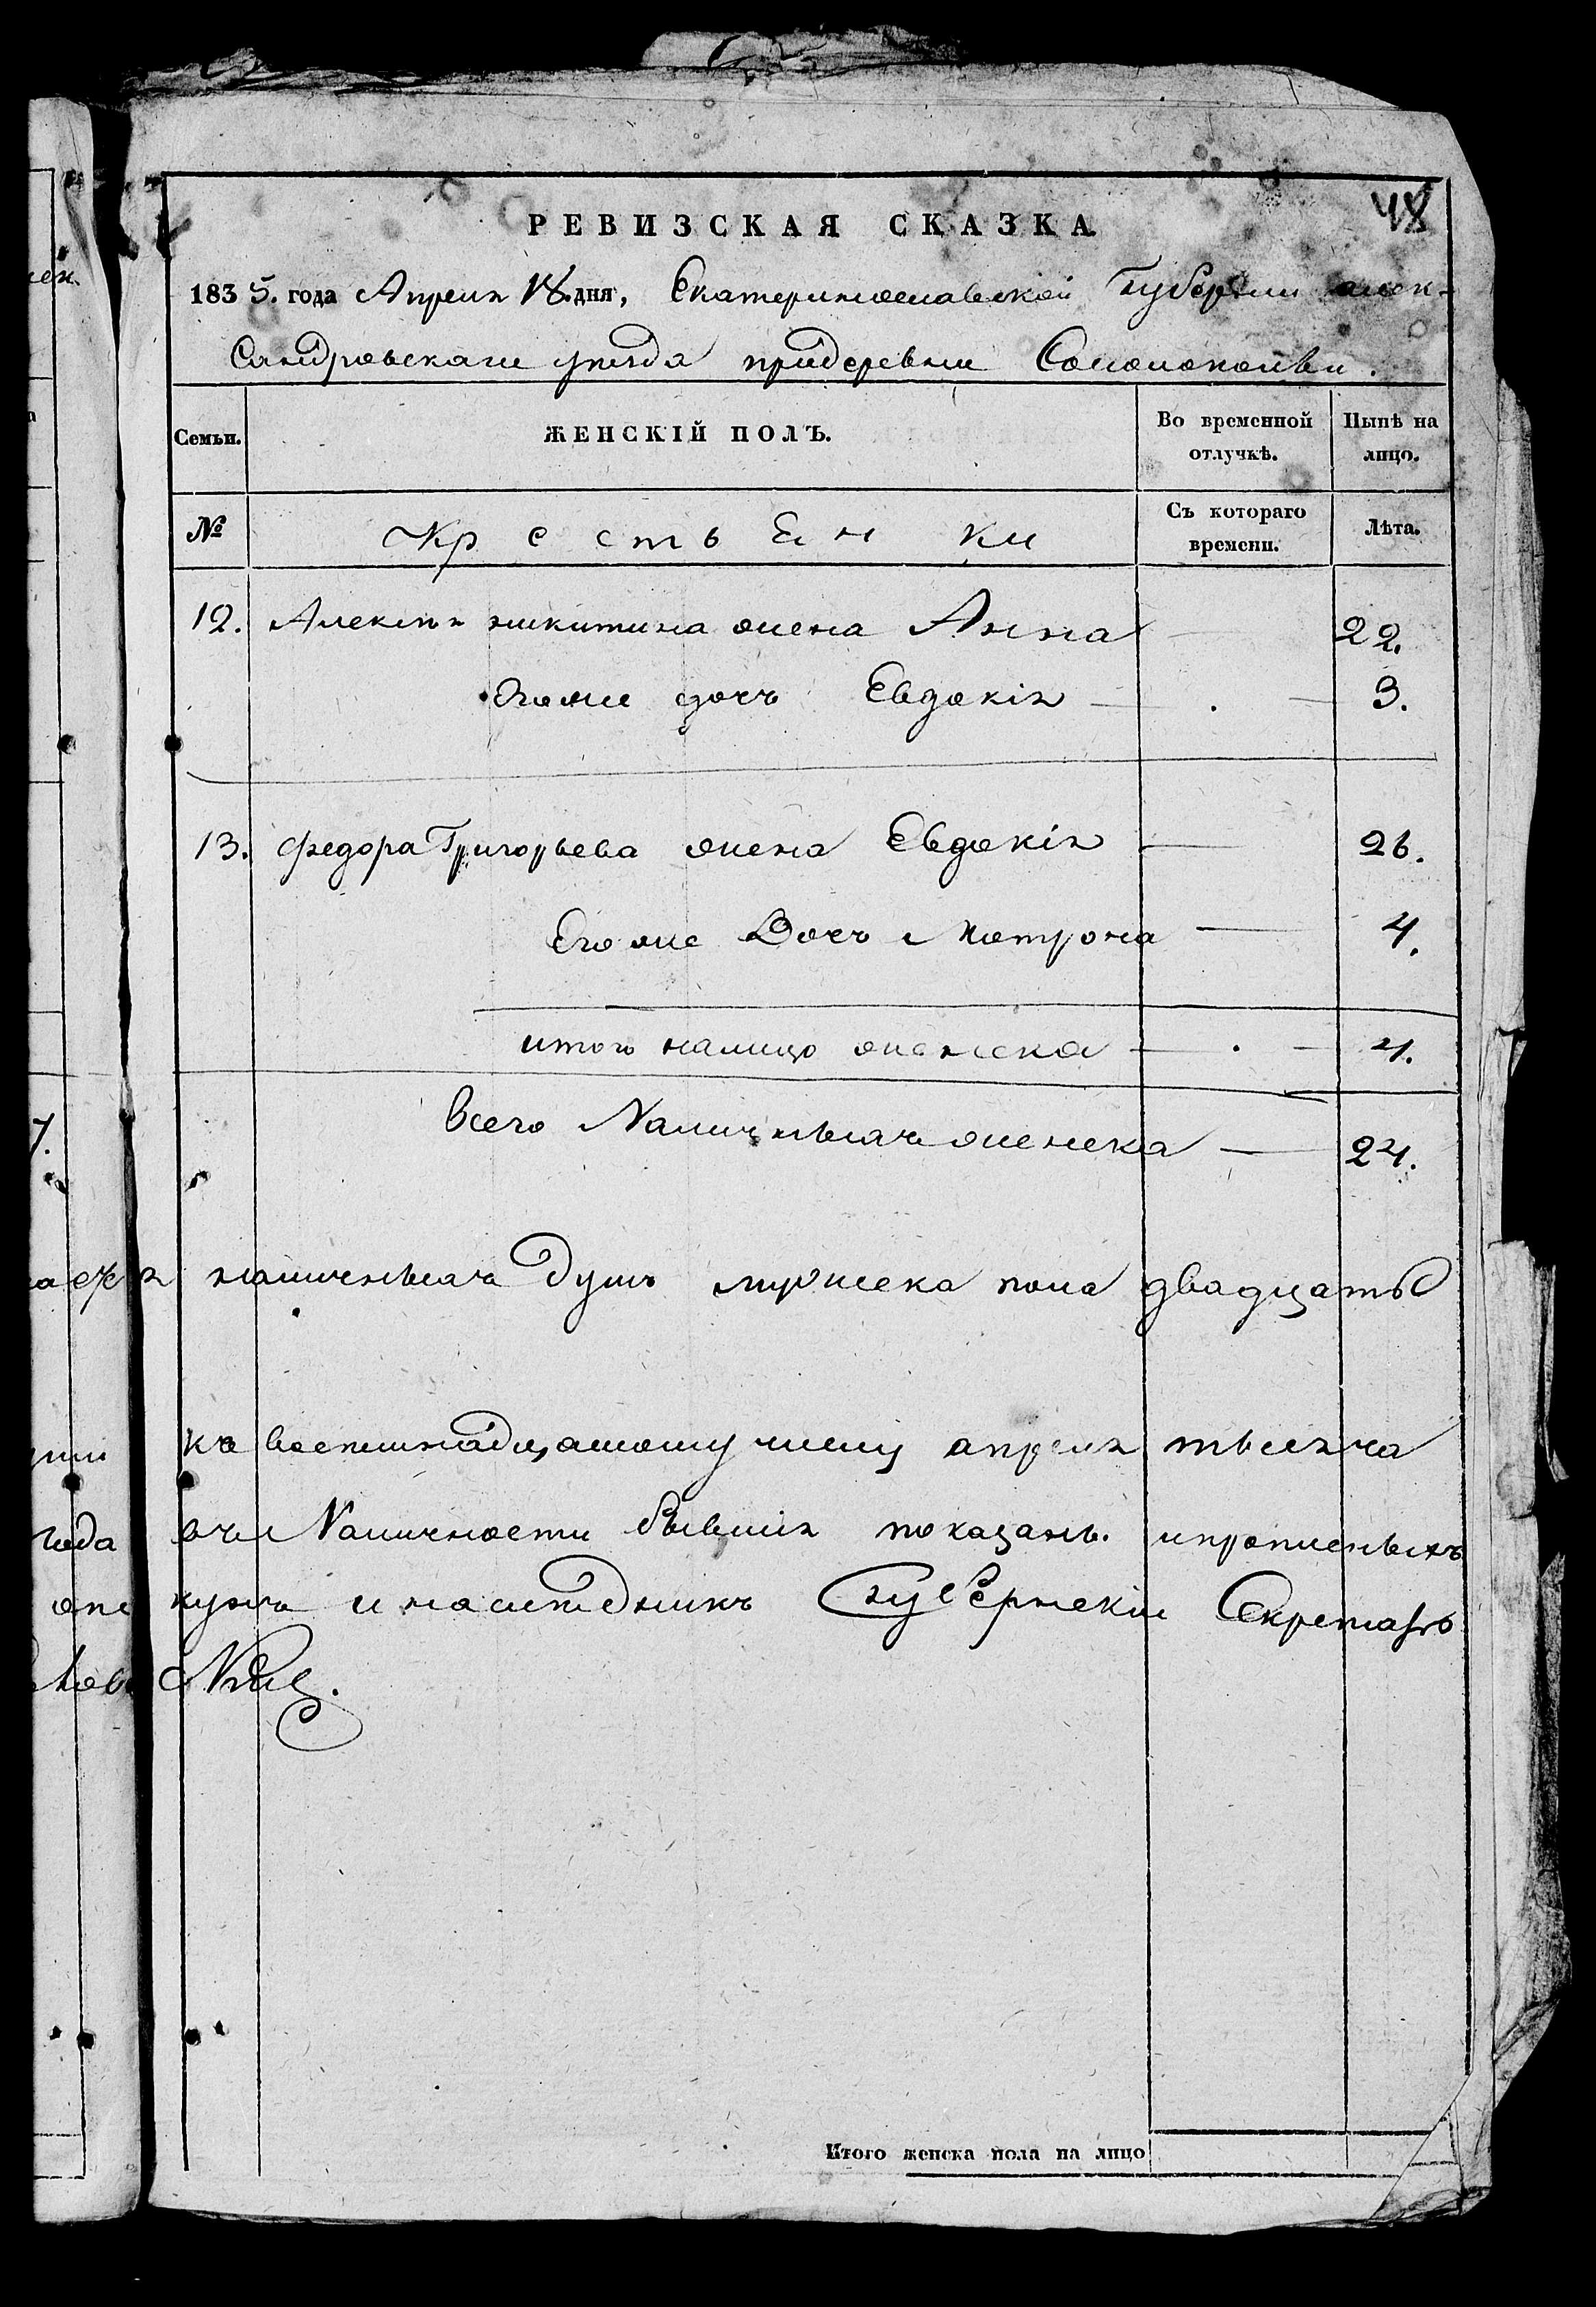 48
РЕВИЗСКАЯ СКАЗКА
1835. года Апреля 18. дня, Екатеринославской Губернии алек-
Сандровскаго уезда придеревни
Семьи. ЖЕНСКІЙ ПОЛЪ. Во временной отлучкѣ. Нынѣ на лицо.
№ Крестьянки Съ котораго времени. Лѣта.
12. Алексея никитина жена Анна 22.
Егоже дочь Евдокія 3.
13. Федора Григорьева жена Евдокія 26.
Егоже Дочь Матрона 4.
итого налицо женска 4.
Всего Наличныхъ женска 24.
наличныхъ душъ мужска пола двадцать
къ восемнадцатому числу апреля тысяча
года вчь Наличности бывшія показаны. ипрописныхъ
опекунъ и наследникъ Губернскій Секретарь
Итого женска пола на лицо